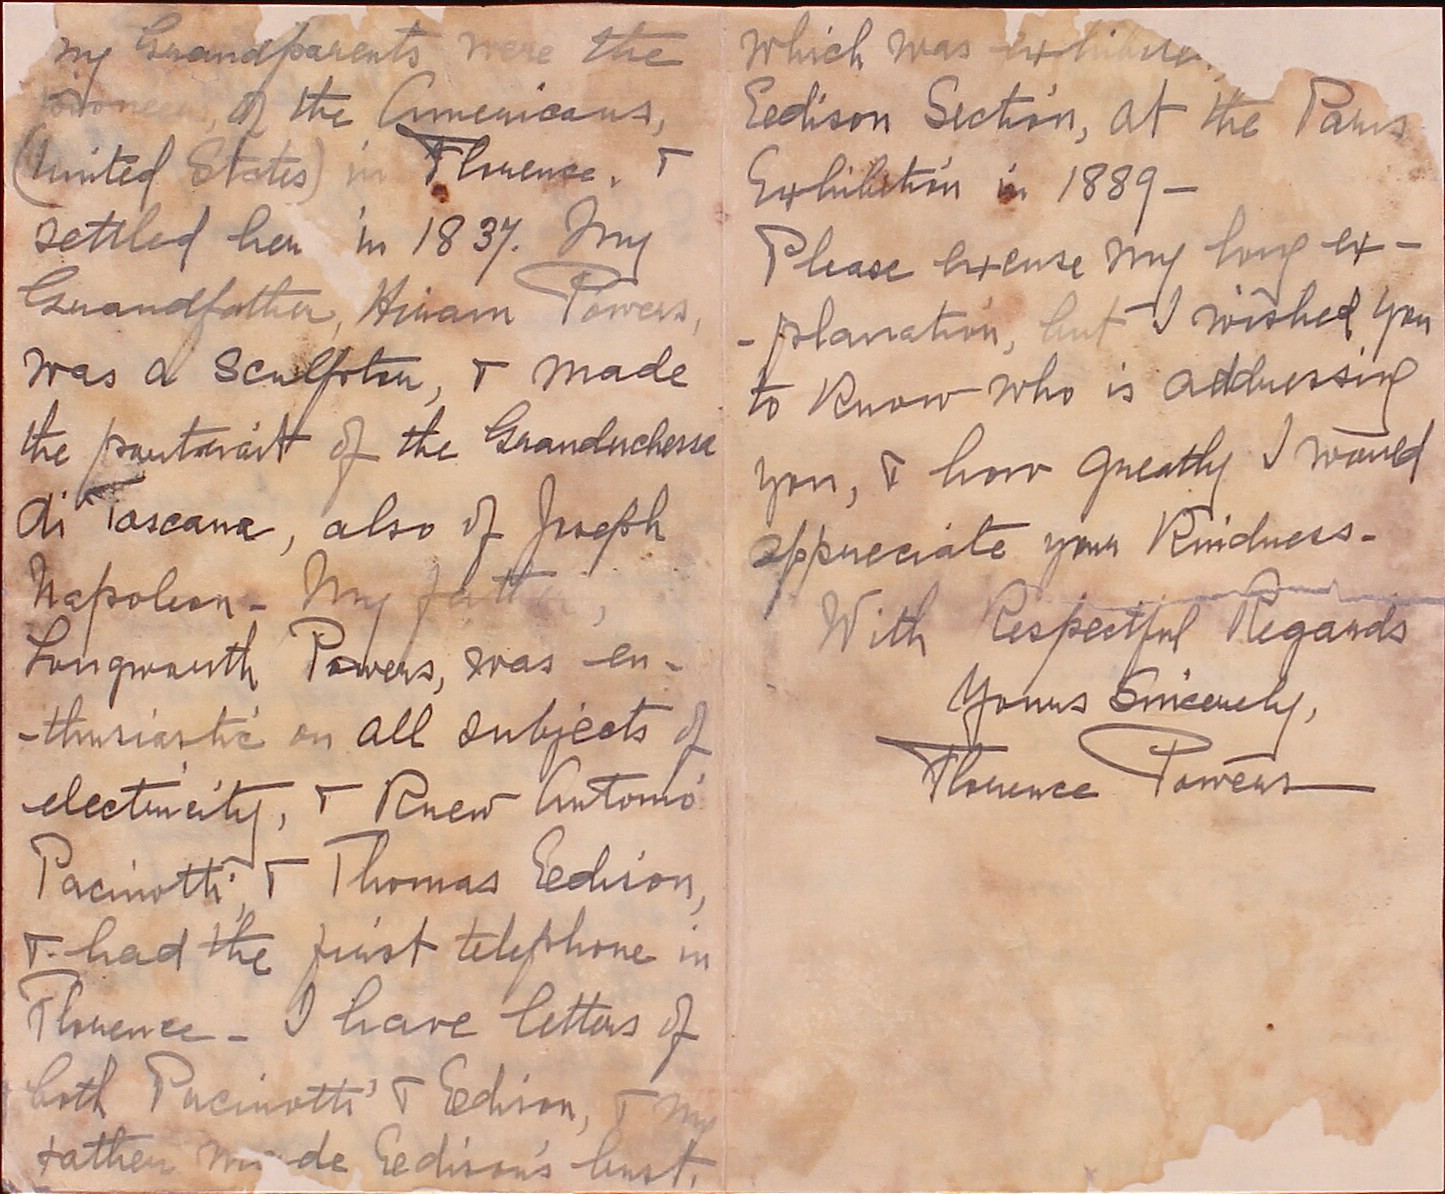 my Grandparents were the
pioneers, of the Americans,
(United States) in Florence. &
settled here in 1837. My
Grandfather, Hiram Powers,
was a Sculptor, & made
the portrait of the Granduchessa
di Toscana, also of Joseph
Napoleon - My father,
Longworth Powers, was en-
-thusiastic on all subjects of
electricity, & Knew Antonio
Pacinotti, & Thomas Eedison,
& had the first telephone in
Florence - I have letters of
both Pacinotti & Eedison, & my
father made Eedison's bust,
which was exhibited
Eedison Section, at the Paris
Exhibition in 1889 -
Please excuse my long ex-
-planation, but I wished you
to Know who is addressing
you, & how greatly I would
appreciate your Kindness -
With Respectful Regards
Yours Sincerely,
Florence Powers